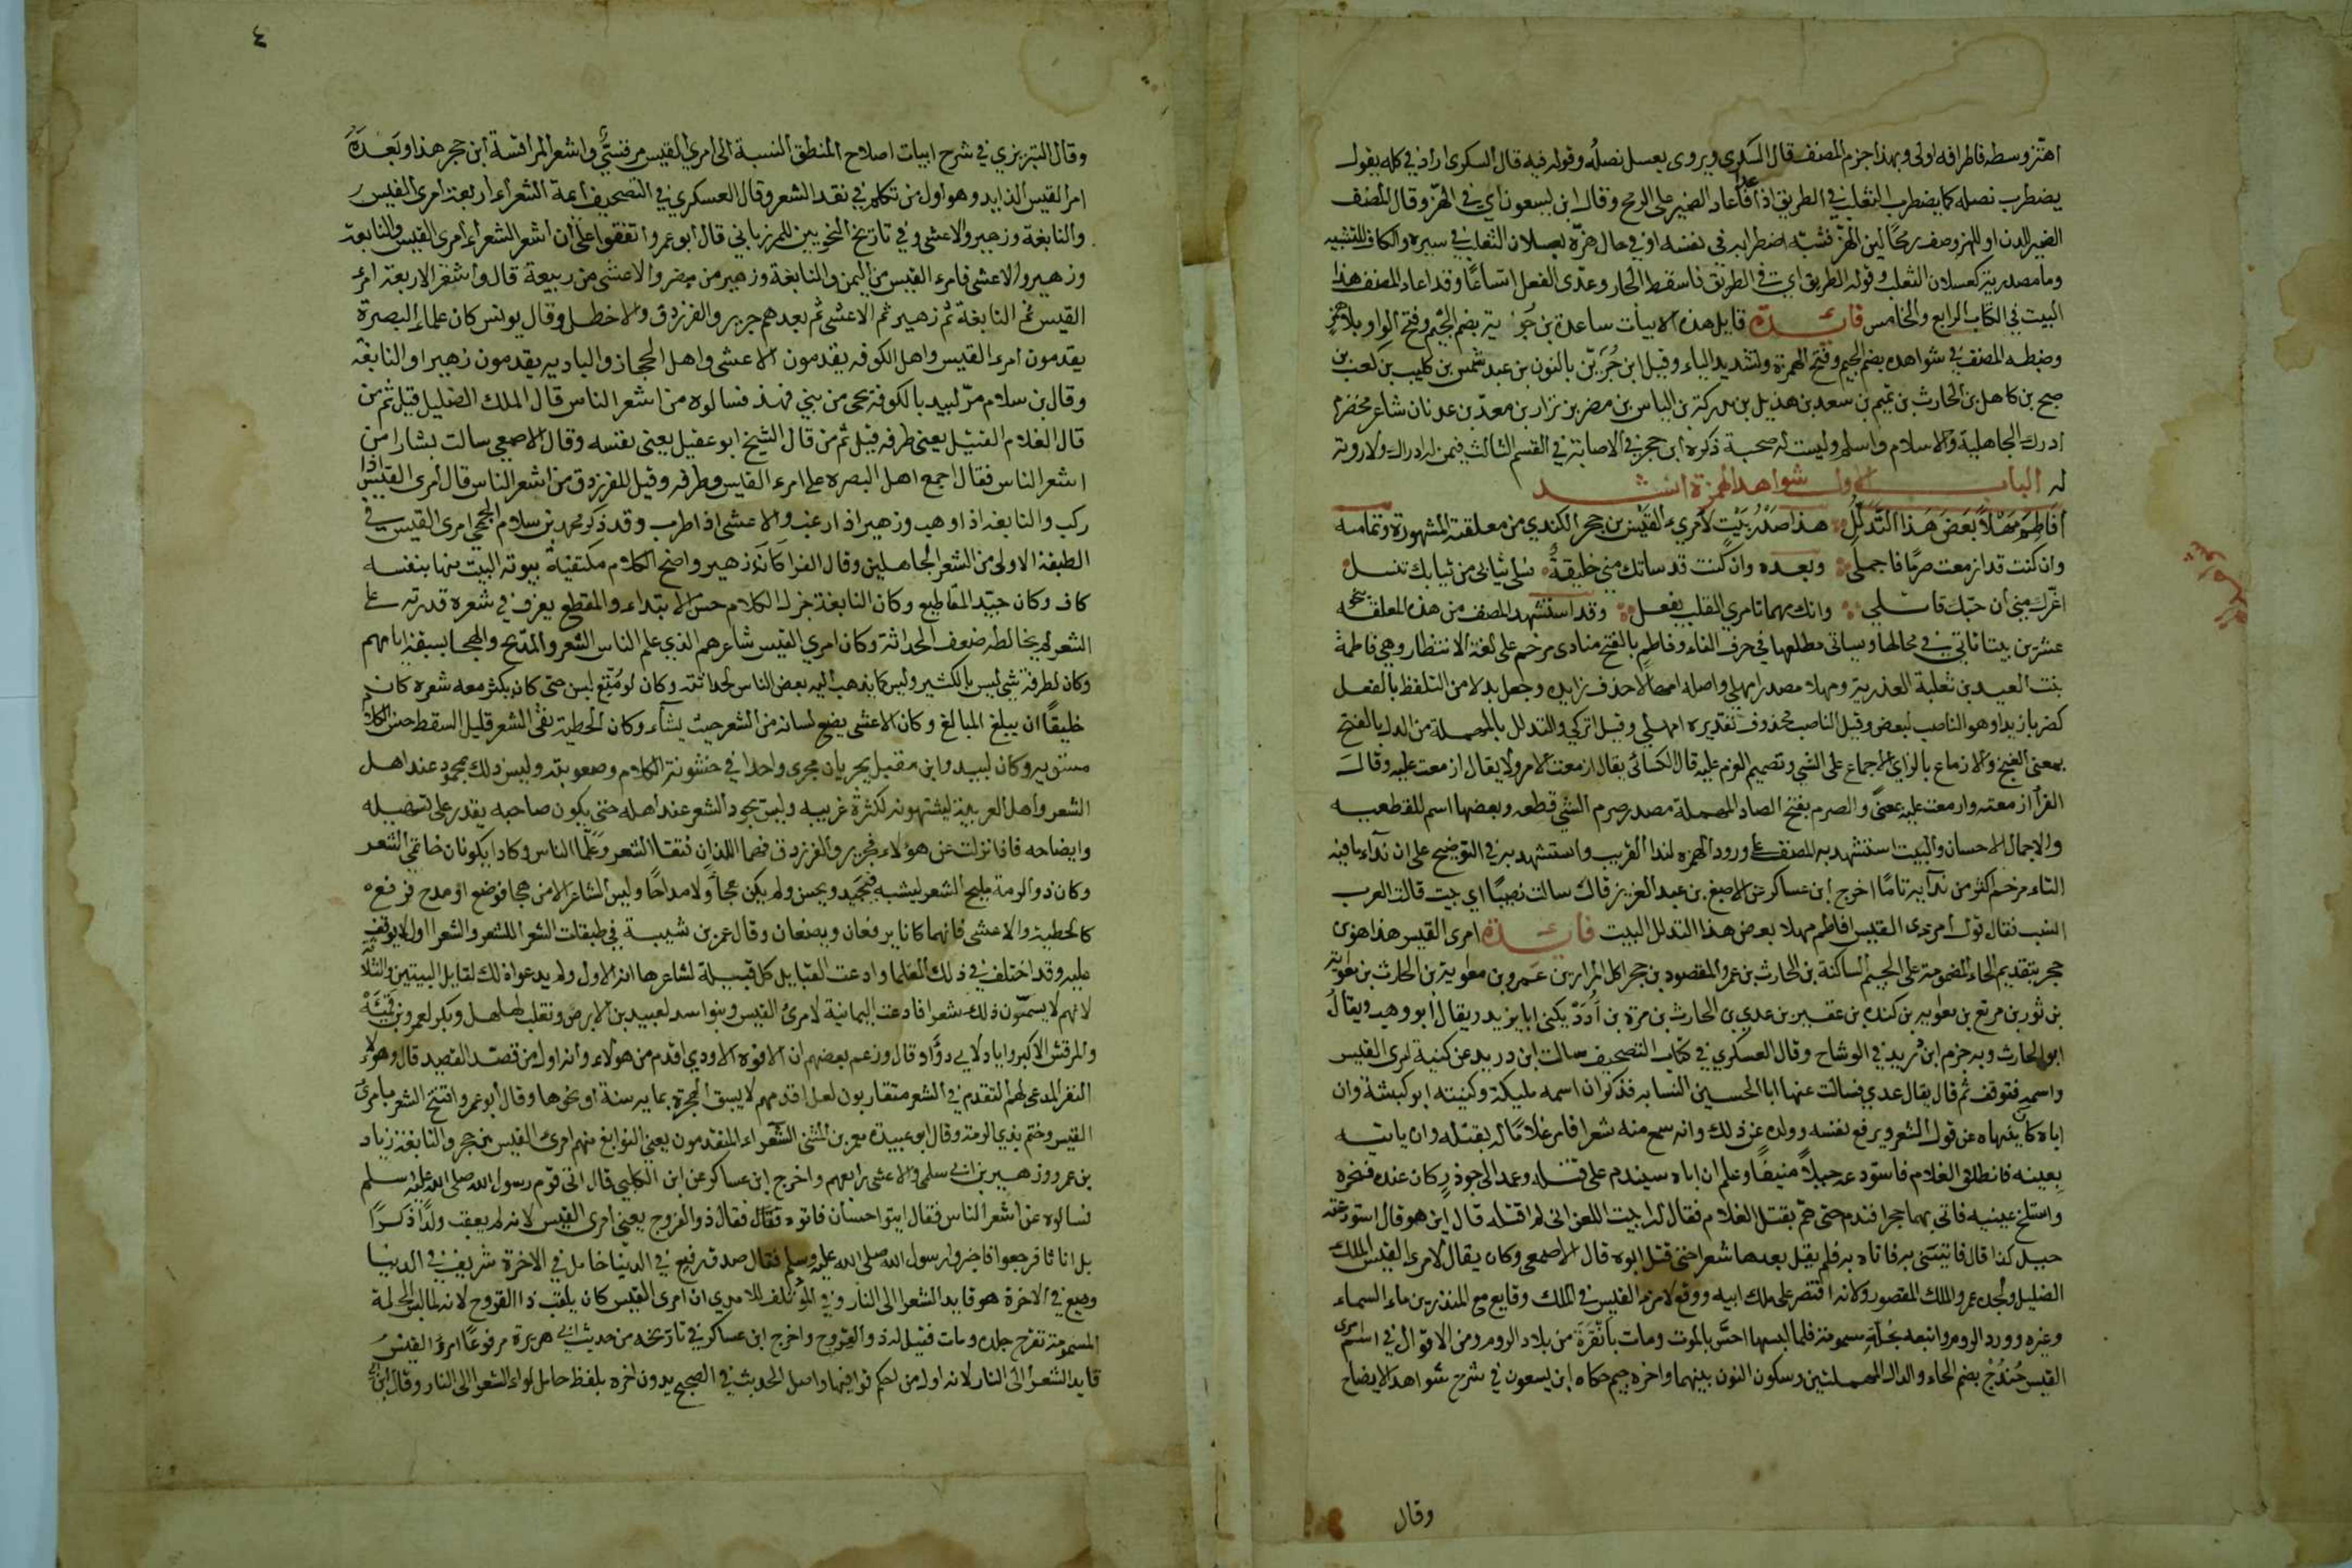 اهتز وسطه فاطرافه اولى وبهذا جزم المصنف قال السكري ويروى يعسل نصله وقوله فيه قال السكرى اراد في كله يقول
يضطرب نصله كما يضطرب الثعلب في الطريق اذا عدا فأعاد الضمير على الرمح وقال ابن يسعون اي في الهز وقال المصنف
الضمير للدن او للهز وصف رمحًا لين الهز فشبه اضطرابه في نفسه او في حال هزه بعسلان الثعلب في سيره والكاف للتشبيه
وما مصدرية كعسلان الثعلب وقوله الطريق اي في الطريق فاسقط الجار وعدّى الفعل اتساعًا وقد اعاد المصنف هذا
البيت في الكتاب الرابع والخامس فائدة قايل هذه الابيات ساعدة بن جؤية بضم الجيم وفتح الواو بلا همز
وضبطه المصنف في شواهده بضم الجيم وفتح الهمزة وتشديد الياء وقيل ابن جُرَيْن بالنون بن عبد شمس بن كليب بن كعب بن
صبح بن كاهل بن الحارث بن تميم بن سعد بن هذيل بن مدركة بن الياس بن مضر بن نزار بن معدّ بن عدنان شاعر مخضرم
ادرك الجاهلية والاسلام واسلم وليست له صحبة ذكره ابن حجر في الاصابة في القسم الثالث فيمن له ادراك ولا روية
له الباب الاول شواهد الهمزة انشد
أَفَاطِمَ مَهْلاً بَعْضَ هَذَا التَّدَلُّلِ هذا صَدْرُ بَيْتٍ لامرئ القَيْس بن حجر الكندي من معلقته المشهورة وتمامه
وان كنت قد ازمعت صرمًا فاجملي وبعده وان كنت قد ساتك مني خليقةٌ فسلي ثيابى من ثيابك تنسل
اغرّك مني أن حبّك قاتلي وانك مهما تامري القلب يفعل وقد استشهد المصنف من هذه المعلقة بنحو
عشرين بيتا تاتي في محالها وسياتى مطلعها في حرف الفاء وفاطم بالفتح منادى مرخم على لغة الانتظار وهي فاطمة
بنت العبيد بن ثعلبة العذرية ومهلا مصدر امهلي واصله امهالا حذف زايده وجعل بدلا من التلفظ بالفعل
كضربا زيدا وهو الناصب لبعض وقيل الناصب محذوف تقديره امهلي وقيل اتركي والتدلل بالمهملة من الدل بالفتح
بمعنى الغنج والازماع بالزاي الاجماع على الشي وتصميم العزم عليه قال الكسائى يقال ازمعت الامر ولا يقال ازمعت عليه وقال
الفرآ ازمعته وازمعت عليه بمعنىً والصرم بفتح الصاد المهملة مصدر صرم الشي قطعه وبعضها اسم للقطعيه
والاجمال الاحسان والبيت استشهد به المصنف على ورود الهمزه لندا القريب واستشهد به في التوضيح على ان نداء ما فيه
التاء مرخم اكثر من ندآيه تامًا اخرج ابن عساكر عن الاصبغ بن عبد العزيز قال سالت نصيبًا اي بيت قالت العرب
انسب فقال قول امرئ القيس افاطم مهلا بعض هذا التدلل البيت فائدة امرى القيس هذا هو بن
حجر بتقديم الحاء المضمومة على الجيم الساكنة بن الحارث بن عمرو المقصور بن حجر اكل المرار بن عمرو بن معوية بن الحارث بن معوية
بن ثور بن مرتع بن معويه بن كنده بن عفير بن عدي بن الحارث بن مرة بن أُدَدّ يكنى ابا يزيد ويقال ابو وهب ويقال
ابو الحارث وبه جزم ابن دريد في الوشاح وقال العسكري في كتاب التصحيف سالت ابن دريد عن كنية امرى القيس
واسمه فتوقف ثم قال يقال عدي فسالت عنها ابا الحسين النسابه فذكر ان اسمه مليكة وكنيته ابو كبشة وان
اباه كان ينهاه عن قول الشعر ويرفع نفسه وولده عن ذلك وانه سمع منه شعرا فامر غلامًا له بقتله وان ياتيه
بعينيه فانطلق الغلام فاستودعه جبلاً منيفًا وعلم ان اباه سيندم على قتله وعمد الى جوذر كان عنده فنحره
وامتلخ عينيه فاتى بهما حجرا فندم حتى همّ بقتل الغلام فقال له ابيت اللعن انى لم اقتله قال اين هو قال استودعته
جبل كذا قال فاتيني به فاتاه به فلم يقل بعدها شعرا حتى قتل ابوه قال الاصمعي وكان يقال لامرى القيس الملك
الضليل ولجده عمرو الملك المقصور لانه اقتصر على ملك ابيه ووقع لامرئ القيس في الملك وقايع مع المنذر بن ماء السماء
وغيره وورد الروم واتبعه بحُلَّةٍ مسمومة فلما البسها احسّ بالموت ومات بأَنْقَرَة من بلاد الروم ومن الاقوال في اسم امرى
القيس حُنْدُجْ بضم الحاء والدال المهملتين وسكون النون بينهما واخره جيم حكاه ابن يسعون في شرح شواهد الايضاح
وقال
٤
وقال التبريزي في شرح ابيات اصلاح المنطق النسبة الى امرئ القيس مرقسيّ واشعر المراقسة ابن حجر هذا وبَعْدَهُ
امرؤ القيس الذايد وهو اول من تكلم في نقد الشعر وقال العسكري في التصحيف ايمة الشعراء اربعة امرى القيس
والنابغة وزهير والاعشى وفي تاريخ النحويين للمرزباني قال ابو عمرو اتفقوا على أن اشعر الشعراء امرى القيس والنابغة
وزهير والاعشى فامرء القيس من اليمن والنابغة وزهير من مضر والاعشى من ربيعة قال واشعر الاربعة امرء
القيس ثم النابغة ثم زهير ثم الاعشى ثم بعدهم جرير والفرزدق والاخطل وقال يونس كان علماء البصرة
يقدمون امرء القيس واهل الكوفه يقدمون الاعشى واهل الحجاز والباديه يقدمون زهيرا والنابغة
وقال بن سلام مرّ لبيد بالكوفة بحي من بني نهد فسالوه من اشعر الناس قال الملك الضليل قيل ثم من
قال الغلام القتيل يعني طرفه قيل ثم من قال الشيخ ابو عقيل يعني نفسه وقال الاصمعي سالت بشارا من
اشعر الناس فقال اجمع اهل البصره على امرء القيس وطرفه وقيل للفرزدق من اشعر الناس قال امرى القيس اذا
ركب والنابغة اذا رهب وزهير اذا رغب والاعشى اذا طرب وقد ذكر محمد بن سلام الجمحي امرى القيس في
الطبقة الاولى من الشعرا الجاهلين وقال الفرا كانَ زهير واضح الكلام مكتفية بيوته البيت منها بنفسه
كاف وكان جيّد المقاطيع وكان النابغة جزل الكلام حسن الابتداء والمقطع يعرف في شعره قدرته على
الشعر لم يخالطه ضعف الحداثة وكان امري القيس شاعرهم الذي علم الناس الشعر والمديح والهجا بسبقه اياهم
وكان لطرفة شي ليس بالكثير وليس كما يذهب اليه بعض الناس لحداثته وكان لو مُتِّع بسن حتى كان يكثر معه شعره كان
خليقًا ان يبلغ المبالغ وكان الاعشى يضع لسانه من الشعر حيث يشآء وكان الحطية نقى الشعر قليل السقط حسن الكلام
مستويه وكان لبيد وابن مقبل يجريان مجرى واحدا في خشونة الكلام وصعوبته وليس ذلك بمحمود عند اهل
الشعر واهل العربية يشتهونه لكثرة غريبه وليس يجود الشعر عند اهله حتى يكون صاحبه يقدر على تسهيله
وايضاحه فاذا نزلت عن هؤلاء فجرير والفرزدق فهما اللذان فتقا الشعر وعَلَّما الناس وكادا يكونان خاتمي الشعر
وكان ذو الرمة مليح الشعر يشبه فيجيد ويحسن ولم يكن هجاً ولا مداحًا وليس الشاعر الا من هجا فوضع او مدح فرفع
كالحطية والاعشى فانهما كانا يرفعان ويضعان وقال عمر بن شيبة في طبقات الشعرا للشعر والشعرا اول لا يوقف
عليه وقد اختلف في ذلك العلما وادعت القبايل كل قبيلة لشاعرها انه الاول ولم يدعوا ذلك لقايل البيتين والثلاثة
لانهم لا يسمّون ذلك شعرا فادعت اليمانية لامرئ القيس وبنو اسد لعبيد بن الابرص وتغلب لمهلهل وبكر لعمرو بن قَمِيْئَة
والمرقش الاكبر واياد لابي دؤاد وقال وزعم بعضهم ان الافوه الاودي اقدم من هولاء وانه اول من قصّد القصيد قال وهولاء
النفر المدعى لهم التقدم في الشعر متقاربون لعل اقدمهم لا يسبق الهجرة بمايه سنة او نحوها وقال ابو عمرو افتتح الشعر بامرئ
القيس وختم بذي الرمة وقال ابو عبيدة معمر بن المثنى الشعراء المتقدمون يعني النوابغ منهم امرئ القيس بن حجر والنابغة زياد
بن عمرو وزهير بن ابي سلمى والاعشى رابعهم واخرج ابن عساكر عن ابن الكلبي قال اتى قوم رسول الله صلى الله عليه وسلم
فسالوه عن اشعر الناس فقال ايتوا حسان فاتوه فقال ذو الفروج يعني امرى القيس لانه لم يعقب ولدًا ذكرًا
بل اناثا فرجعوا فاخبروا رسول الله صلى الله عليه وسلم فقال صدق رفيع في الدنيا خامل في الاخرة شريف في الدنيا
وضيع في الاخرة هو قايد الشعرا الى النار وفي المؤتلف للامدي ان امرى القيس كان يلقب ذا القروح لانه لما لبس الحلة
المسمومة تقرح جلده ومات فقيل له ذو القروح واخرج ابن عساكر في تاريخه من حديث ابي هريرة مرفوعًا امرؤ القيس
قايد الشعرا الى النار لانه اول من احكم قوافيها واصل الحديث في الصحيح بدون اخره بلفظ حامل لواء الشعرا الى النار وقال ابن